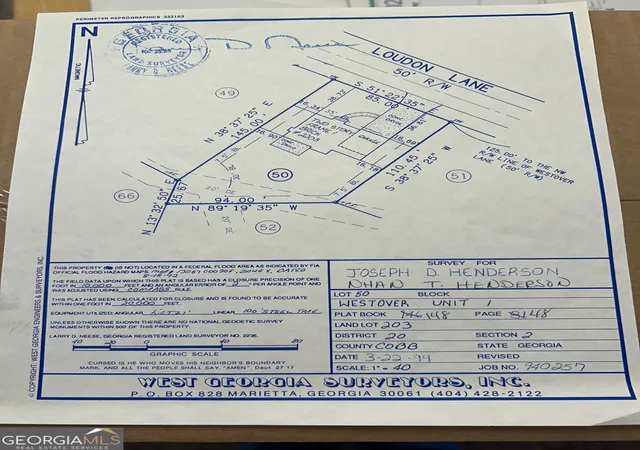 PERIMETER REPROGRAPHICS 332163
N
MAGNETIC
GEORGIA
REGISTERED
No. 2235
LAND SURVEYOR
LARRY D. NEESE
LOUDON LANE
50' R/W
S 51° 22' 35"
85.00'
49
N 38° 37' 25" E
145.00'
TWO STORY
FRAME/
BRICK
#2003
CONC.
DRIVE
GARAGE
16.90
16.69
110.45'
S 38° 37' 25" W
125.00' TO THE NW
R/W LINE OF WESTOVER
LANE (50' R/W)
51
50
66
N 13° 32' 50" E
25.67'
20'
94.00'
N 89° 19' 35" W
52
THIS PROPERTY (IS NOT) LOCATED IN A FEDERAL FLOOD AREA AS INDICATED BY FIA
OFFICIAL FLOOD HAZARD MAPS.
THE FIELD DATA UPON WHICH THIS PLAT IS BASED HAS A CLOSURE PRECISION OF ONE
FOOT IN 10,000 FEET AND AN ANGULAR ERROR OF PER ANGLE POINT AND
WAS ADJUSTED USING COMPASS RULE.
THIS PLAT HAS BEEN CALCULATED FOR CLOSURE AND IS FOUND TO BE ACCURATE
WITHIN ONE FOOT IN 20,000 FEET.
EQUIPMENT UTILIZED: ANGULAR LINEAR 100' STEEL TAPE
UNLESS OTHERWISE SHOWN THERE ARE NO NATIONAL GEODETIC SURVEY
MONUMENTS WITHIN 500' OF THIS PROPERTY.
LARRY D. NEESE, GEORGIA REGISTERED LAND SURVEYOR NO. 2235.
40 20 0 40 80
GRAPHIC SCALE
CURSED IS HE WHO MOVES HIS NEIGHBOR'S BOUNDARY
MARK, AND ALL THE PEOPLE SHALL SAY, "AMEN". Daut. 27:17
SURVEY FOR
JOSEPH D. HENDERSON
NHAN T. HENDERSON
LOT 50 BLOCK
WESTOVER UNIT 1
PLAT BOOK PAGE
LAND LOT 203
DISTRICT 20 SECTION 2
COUNTY COBB STATE GEORGIA
DATE 3-22-94 REVISED
SCALE: 1" = 40 JOB NO. 940257
© COPYRIGHT: WEST GEORGIA ENGINEERS & SURVEYORS, INC.
WEST GEORGIA SURVEYORS, INC.
P.O. BOX 828 MARIETTA, GEORGIA 30061 (404) 428-2122
GEORGIAMLS
REAL ESTATE SERVICES